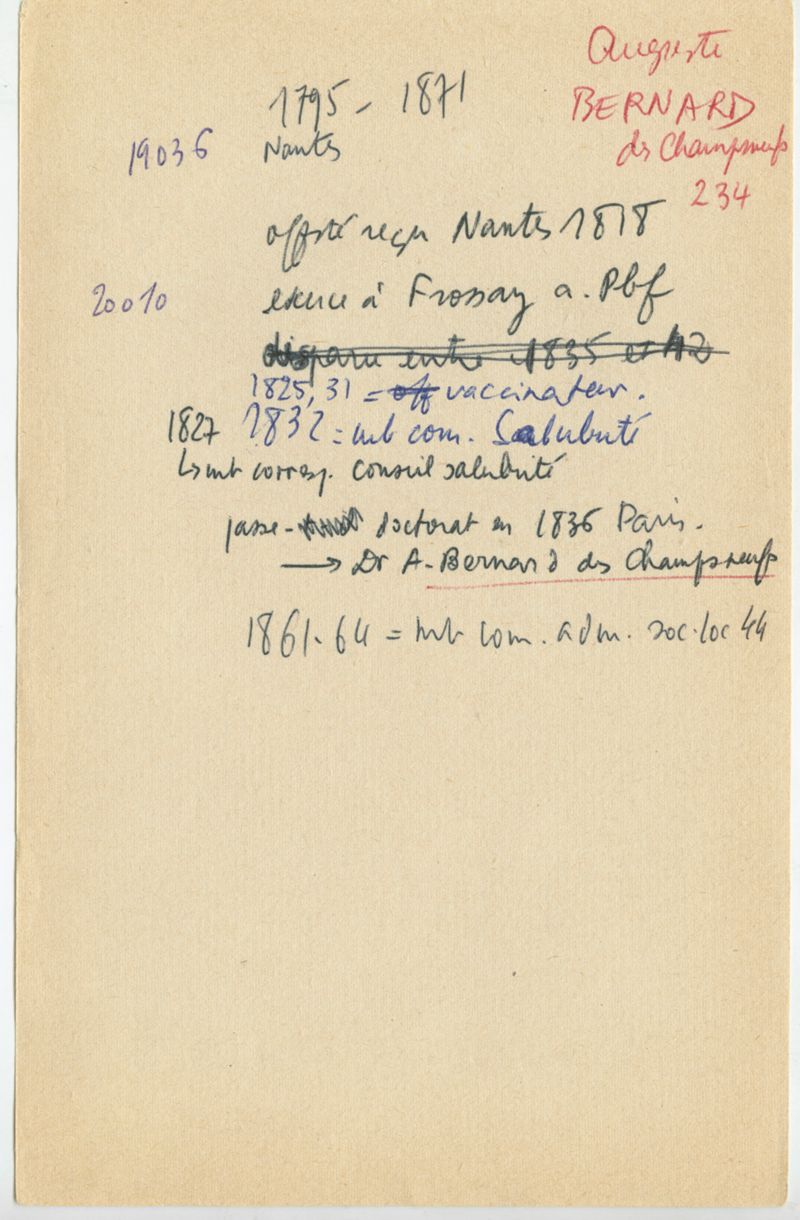 Auguste
BERNARD
des Champsneufs
234
1795 - 1871
19036 Nantes
offsté reçu Nantes 1818
20010 exerce à Frossay a. Pbf
disparu entre 1835 et 42
1825, 31 = off vaccinateur.
1827 1832 = mb com. Salubrité
↳ mb corresp. conseil salubrité
passe- doctorat en 1836 Paris.
→ Dr A-Bernard des Champsneufs
1861-64 = mb com. adm. soc. loc 44